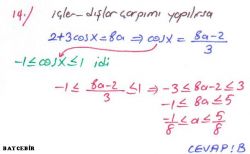 14./ içler-dışlar çarpımı yapılırsa
2+3cosx=8a ⇒ cosx = (8a-2)/3
-1≤cosx≤1 idi
-1 ≤ (8a-2)/3 ≤ 1 ⇒ -3 ≤ 8a-2 ≤ 3
-1 ≤ 8a ≤ 5
-1/8 ≤ a ≤ 5/8
BATCEBİR
CEVAP: B